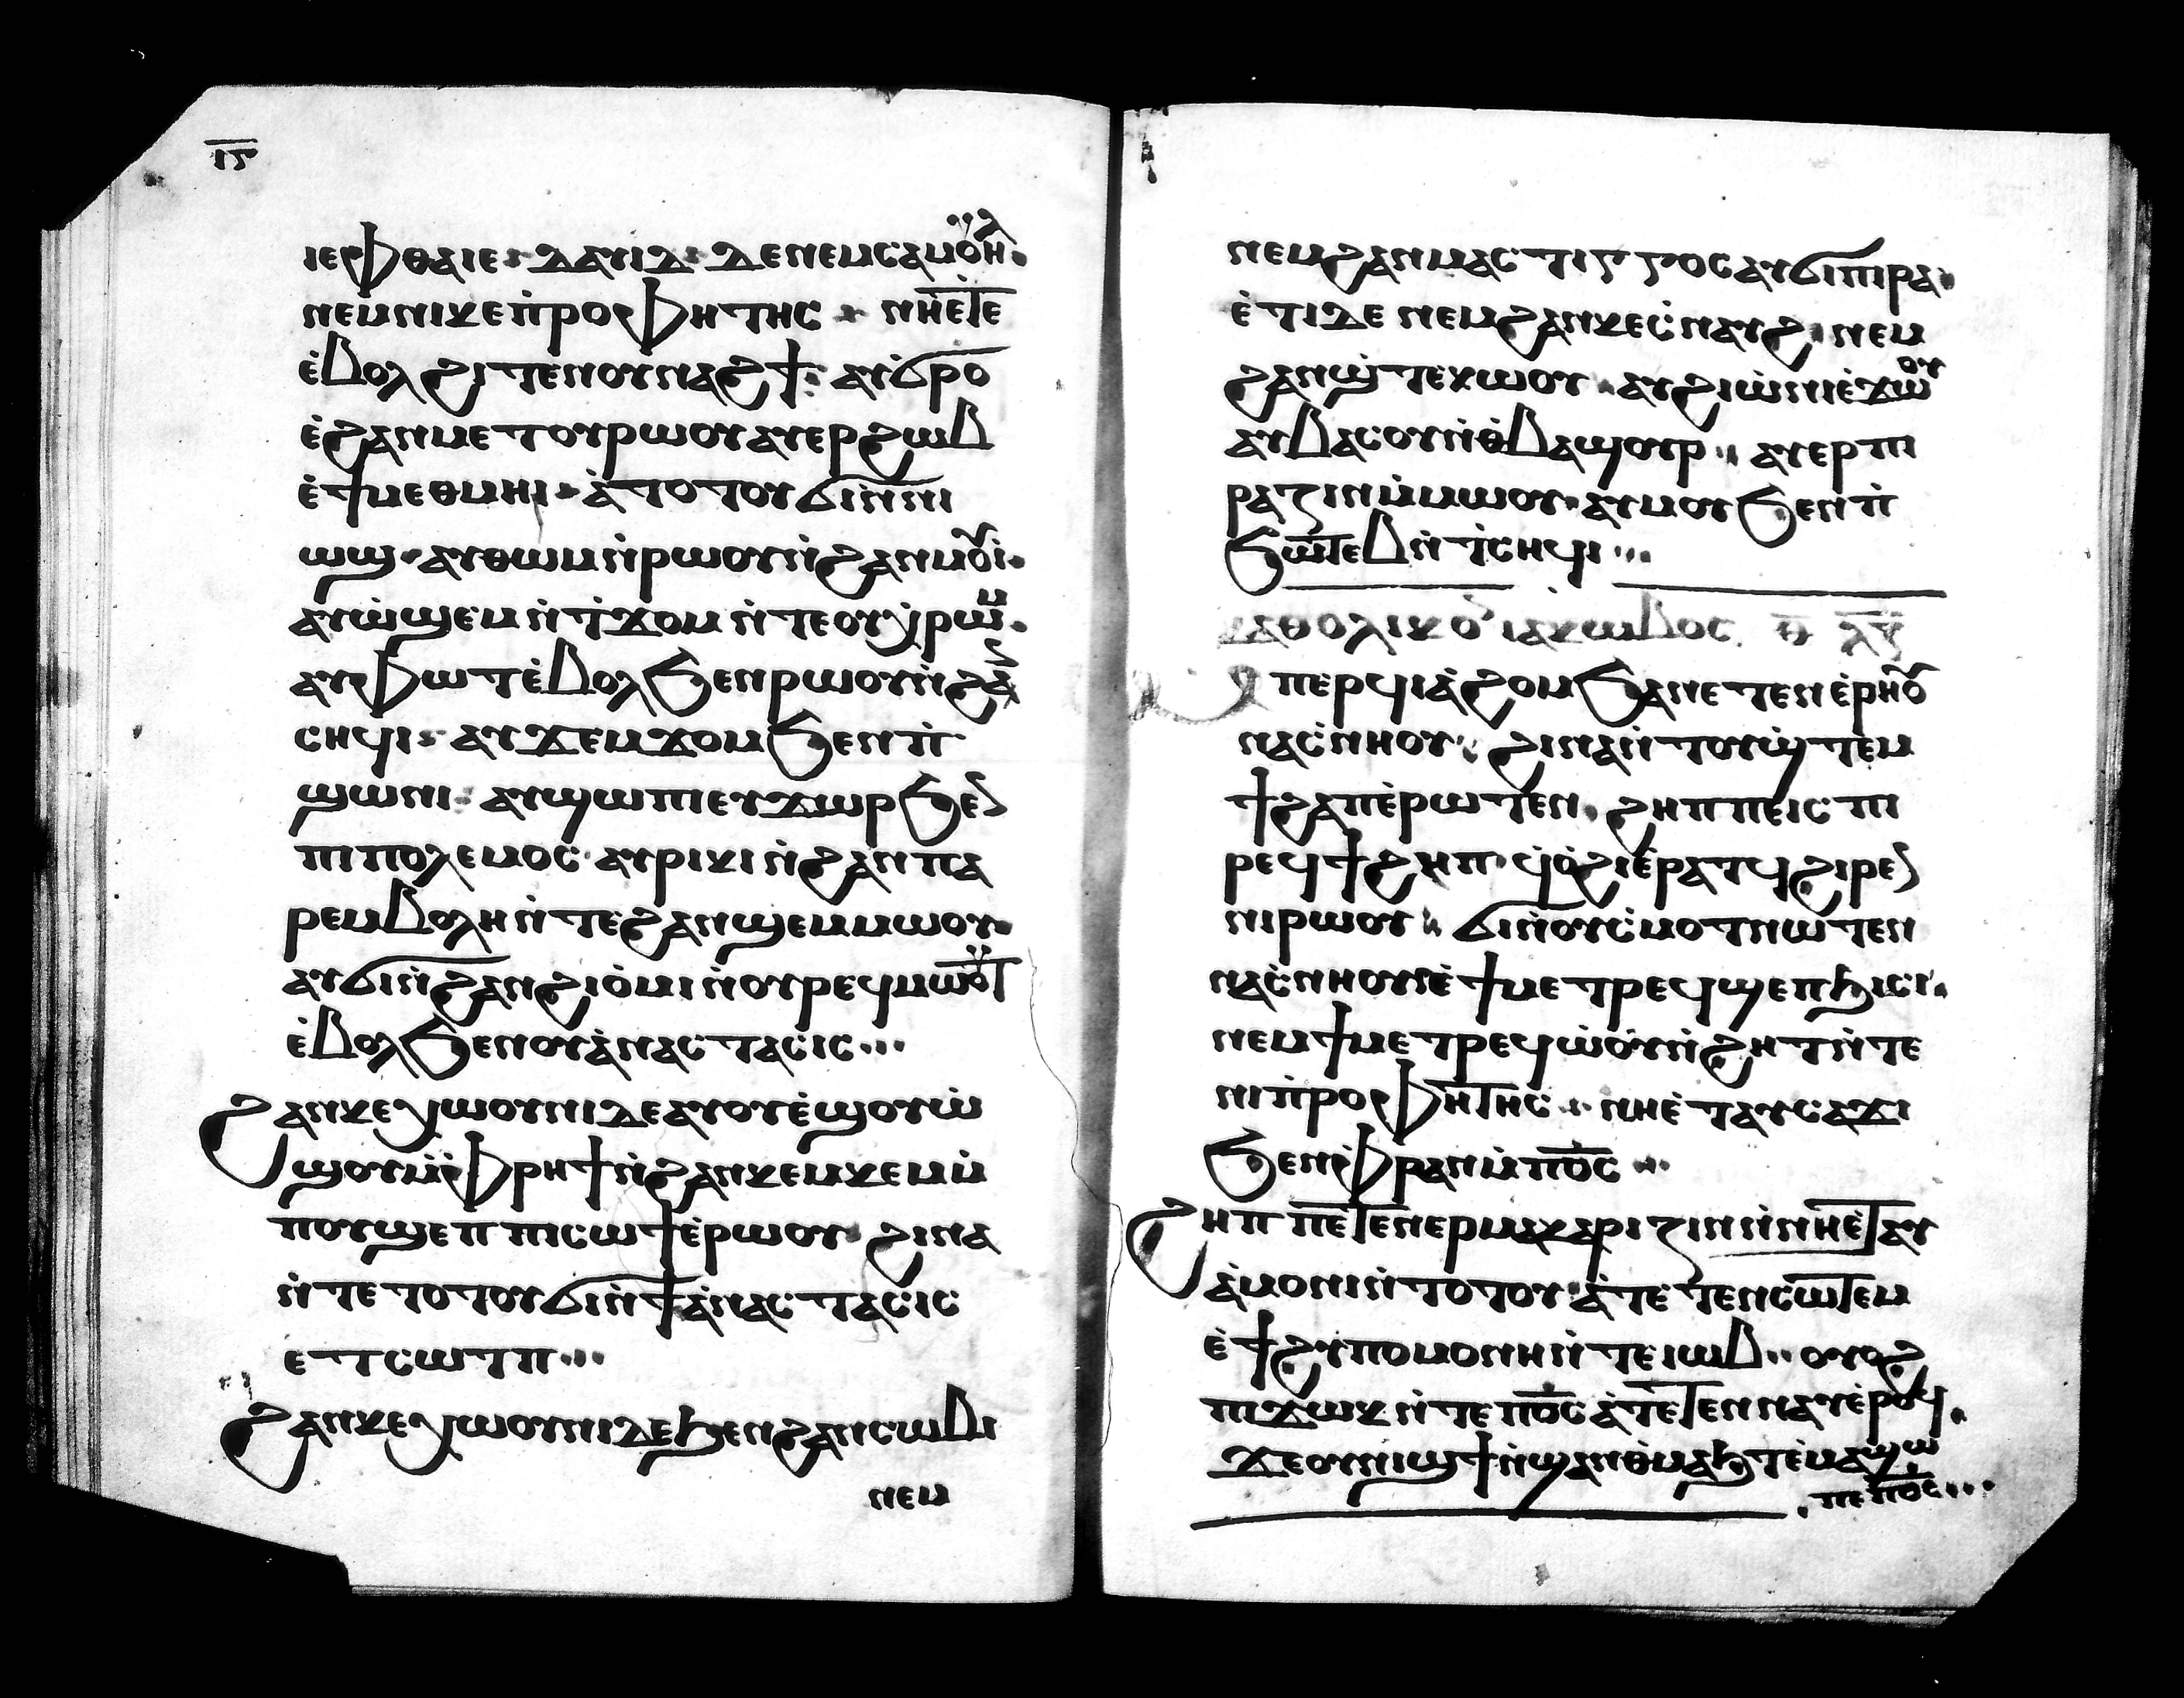 ⲓⲋ
ⲓⲉⲫⲑⲁⲓⲉ ⲇⲁⲩⲓⲇ ⲇⲉ ⲛⲉⲙ ⲥⲁⲙⲟⲩⲏⲗ
ⲛⲉⲙ ⲛⲓⲕⲉⲡ̇ⲣⲟⲫⲏⲧⲏⲥ ⲛⲏⲉ̇ⲧⲉ
ⲉ̇ⲃⲟⲗ ϩⲓⲧⲉⲛ ⲟⲩⲛⲁϩϯ ⲁⲩϭⲣⲟ
ⲉ̇ϩⲁⲛⲙⲉⲧⲟⲩⲣⲱⲟⲩ ⲁⲩⲉⲣϩⲱⲃ
ⲉ̇ϯⲙⲉⲑⲙⲏⲓ ⲁ̇ⲧⲟⲧⲟⲩ ϭⲓⲛ̇ⲛⲓ
ⲱϣ ⲁⲩⲑⲱⲙ ⲛ̇ⲣⲱⲟⲩ ⲛ̇ϩⲁⲛⲙⲟⲩⲓ̇
ⲁⲩⲱ̇ϣⲉⲙ ⲛ̇ⲧ̇ϫⲟⲙ ⲛ̇ⲧⲉⲟⲩⲭ̇ⲣⲱⲙ
ⲁⲩⲫⲱⲧ ⲉ̇ⲃⲟⲗ ϧⲉⲛ ⲣⲱⲟⲩ ⲛ̇ϩⲁⲛ
ⲥⲏϥⲓ ⲁⲩϫⲉⲙϫⲟⲙ ϧⲉⲛ ⲡ̇
ϣⲱⲛⲓ ⲁⲩϣⲱⲡⲓ ⲉⲩϫⲱⲣ ϧⲉⲛ
ⲡⲓⲡⲟⲗⲉⲙⲟⲥ ⲁⲩⲣⲓⲕⲓ ⲛ̇ϩⲁⲛⲡⲁ
ⲣⲉⲙⲃⲟⲗⲏ ⲛ̇ⲧⲉϩⲁⲛϣⲉⲙⲙⲱⲟⲩ
ⲁⲩϭⲓ ⲛ̇ϩⲁⲛϩⲓⲟ̇ⲙⲓ ⲛ̇ⲟⲩⲣⲉϥⲙⲱⲟⲩⲧ
ⲉ̇ⲃⲟⲗ ϧⲉⲛ ⲟⲩⲁ̇ⲛⲁⲥⲧⲁⲥⲓⲥ
ϩⲁⲛⲕⲉⲭⲱⲟⲩⲛⲓ ⲇⲉ ⲁⲩⲟⲩⲉ̇ϣⲟⲩⲱ̇
ϣⲟⲩ ⲙ̇ⲫⲣⲏϯ ⲛ̇ϩⲁⲛⲕⲉⲙⲕⲉⲙ ⲙ̇
ⲡⲟⲩϣⲉⲡ ⲡⲓⲥⲱϯ ⲉ̇ⲣⲱⲟⲩ ϩⲓⲛⲁ
ⲛ̇ⲧⲉⲧⲟⲧⲟⲩ ϭⲓ ⲛ̇ϯⲁ̇ⲛⲁⲥⲧⲁⲥⲓⲥ
ⲉⲧⲥⲱⲧⲡ
ϩⲁⲛⲕⲉⲭⲱⲟⲩⲛⲓ ⲇⲉ ϧⲉⲛ ϩⲁⲛⲥⲱⲃⲓ
ⲛⲉⲙ
ⲛⲉⲙ ϩⲁⲛⲙⲁⲥⲧⲓⲅⲅⲟⲥ ⲁⲩϭⲓⲡⲓⲣⲁ
ⲉ̇ⲧⲓ ⲇⲉ ⲛⲉⲙ ϩⲁⲛⲕⲉⲥ̇ⲛⲁⲩϩ ⲛⲉⲙ
ϩⲁⲛϣ̇ⲧⲉⲕⲱⲟⲩ ⲁⲩϩⲓⲱ̇ⲛⲓ ⲉ̇ϫⲱⲟⲩ
ⲁⲩⲃⲁⲥⲟⲩ ⲛ̇ⲑ̇ⲃⲁϣⲟⲩⲣ ⲁⲩⲉⲣⲡⲓ
ⲣⲁⲍⲓⲛ ⲙ̇ⲙⲱⲟⲩ ⲁⲩⲙⲟⲩ ϧⲉⲛ ⲡ̇
ϧⲱⲧⲉⲃ ⲛ̇ⲧ̇ⲥⲏϥⲓ
ⲕⲁⲑⲟⲗⲓⲕⲟⲛ ⲓⲁⲕⲱⲃⲟⲥ
ⲙⲡⲉⲣϥⲓⲁ̇ϩⲟⲙ ϧⲁ ⲛⲉⲧⲉⲛⲉ̇ⲣⲏⲟⲩ
ⲛⲁⲥ̇ⲛⲏⲟⲩ ϩⲓⲛⲁ ⲛ̇ⲧⲟⲩϣ̇ⲧⲉⲙ
ϯϩⲁⲡ ⲉ̇ⲣⲱⲧⲉⲛ ϩⲏⲡⲡⲉ ⲓⲥ ⲡⲓ
ⲣⲉϥϯϩⲁⲡ ϥ̇ⲟ̇ϩⲓ ⲉ̇ⲣⲁⲧϥ ϩⲓⲣⲉⲛ
ⲛⲓⲣⲱⲟⲩ ϭⲓ ⲛ̇ⲟⲩⲥ̇ⲙⲟⲧ ⲛⲱⲧⲉⲛ
ⲛⲁⲥ̇ⲛⲏⲟⲩ ⲉ̇ϯⲙⲉⲧⲣⲉϥϣⲉⲡϧⲓⲥⲓ
ⲛⲉⲙ ϯⲙⲉⲧⲣⲉϥⲱ̇ⲟⲩ ⲛ̇ϩⲏⲧ ⲛ̇ⲧⲉ
ⲛⲓⲡ̇ⲣⲟⲫⲏⲧⲏⲥ ⲛⲏⲉ̇ⲧⲁⲩⲥⲁϫⲓ
ϧⲉⲛ ⲫⲣⲁⲛ ⲙ̇ⲡⲟ̅ⲥ̅
ϩⲏⲡⲡⲉ ⲧⲉⲛⲉⲣⲙⲁⲕⲁⲣⲓⲍⲓⲛ ⲛ̇ⲛⲏⲉ̇ⲧⲁⲩ
ⲁ̇ⲙⲟⲛⲓ ⲛ̇ⲧⲟⲧⲟⲩ ⲁ̇ⲧⲉⲧⲉⲛⲥⲱⲧⲉⲙ
ⲉ̇ϯϩⲩⲡⲟⲙⲟⲛⲏ ⲛ̇ⲧⲉ ⲓⲱⲃ ⲟⲩⲟϩ
ⲡⲓϫⲱⲕ ⲛ̇ⲧⲉ ⲡⲟ̅ⲥ̅ ⲁ̇ⲧⲉⲧⲉⲛⲛⲁⲩ ⲉ̇ⲣⲟϥ
ϫⲉ ⲟⲩⲛⲓϣϯ ⲛ̇ϣⲁⲛⲑ̇ⲙⲁϧⲧ ⲉ̇ⲙⲁϣⲱ
ⲡⲉ ⲡⲟ̅ⲥ̅